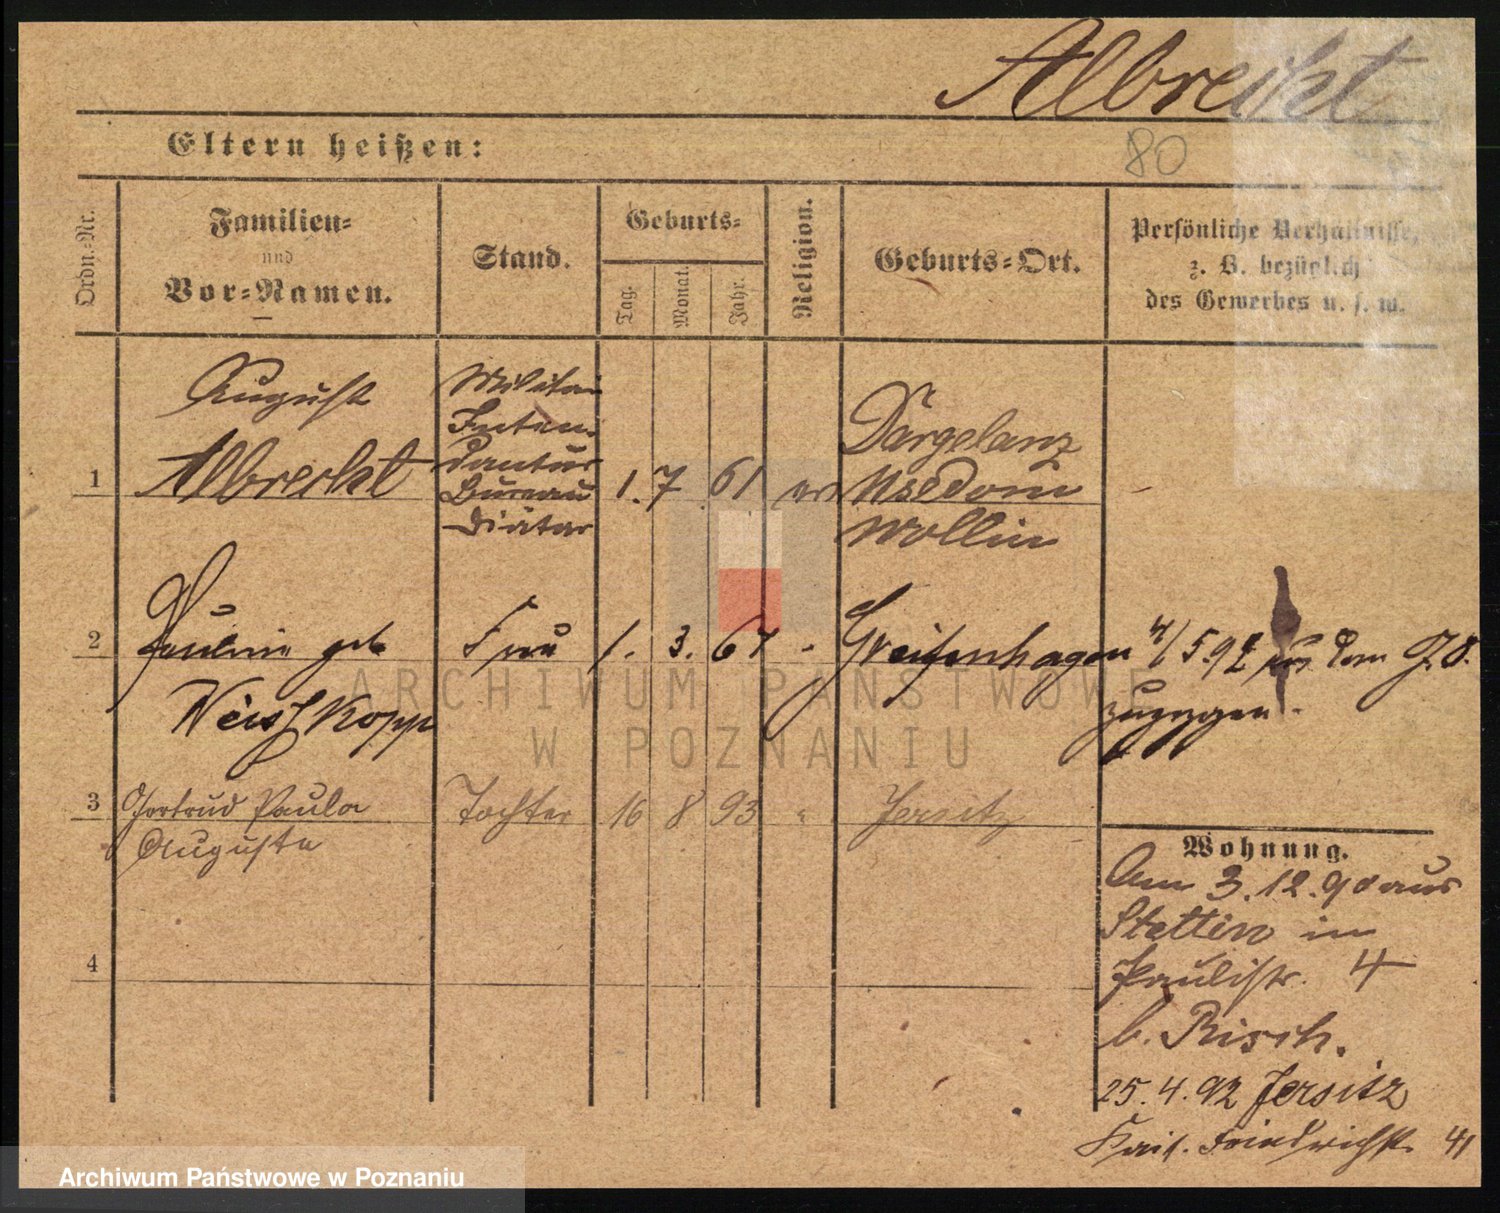 Albrecht
80
Eltern heißen:
Ordn.-Nr.
Familien-
und
Vor-Namen.
Stand.
Geburts-
Tag.
Monat.
Jahr.
Religion.
Geburts-Ort.
Persönliche Verhältnisse,
z. B. bezüglich
des Gewerbes u. s. w.
1
August
Albrecht
Militair
Inten-
dantur
Bureau
Diätar
1. 7 61
Dargelanz
Usedom
Wollin
2
Pauline geb
Weishkopp
Frau
1. 3. 67
"
Greifenhagen
4/5 92 aus Pom
zugezogen.
3
Gertrud Paula
Auguste
Tochter
16 8 93
"
Jersitz
4
Wohnung.
Am 3.12.90 aus
Stettin in
Paulistr. 4
b. Risch.
25.4.92 Jersitz
Kais. Friedrichstr. 41
ARCHIWUM PAŃSTWOWE
W POZNANIU
Archiwum Państwowe w Poznaniu